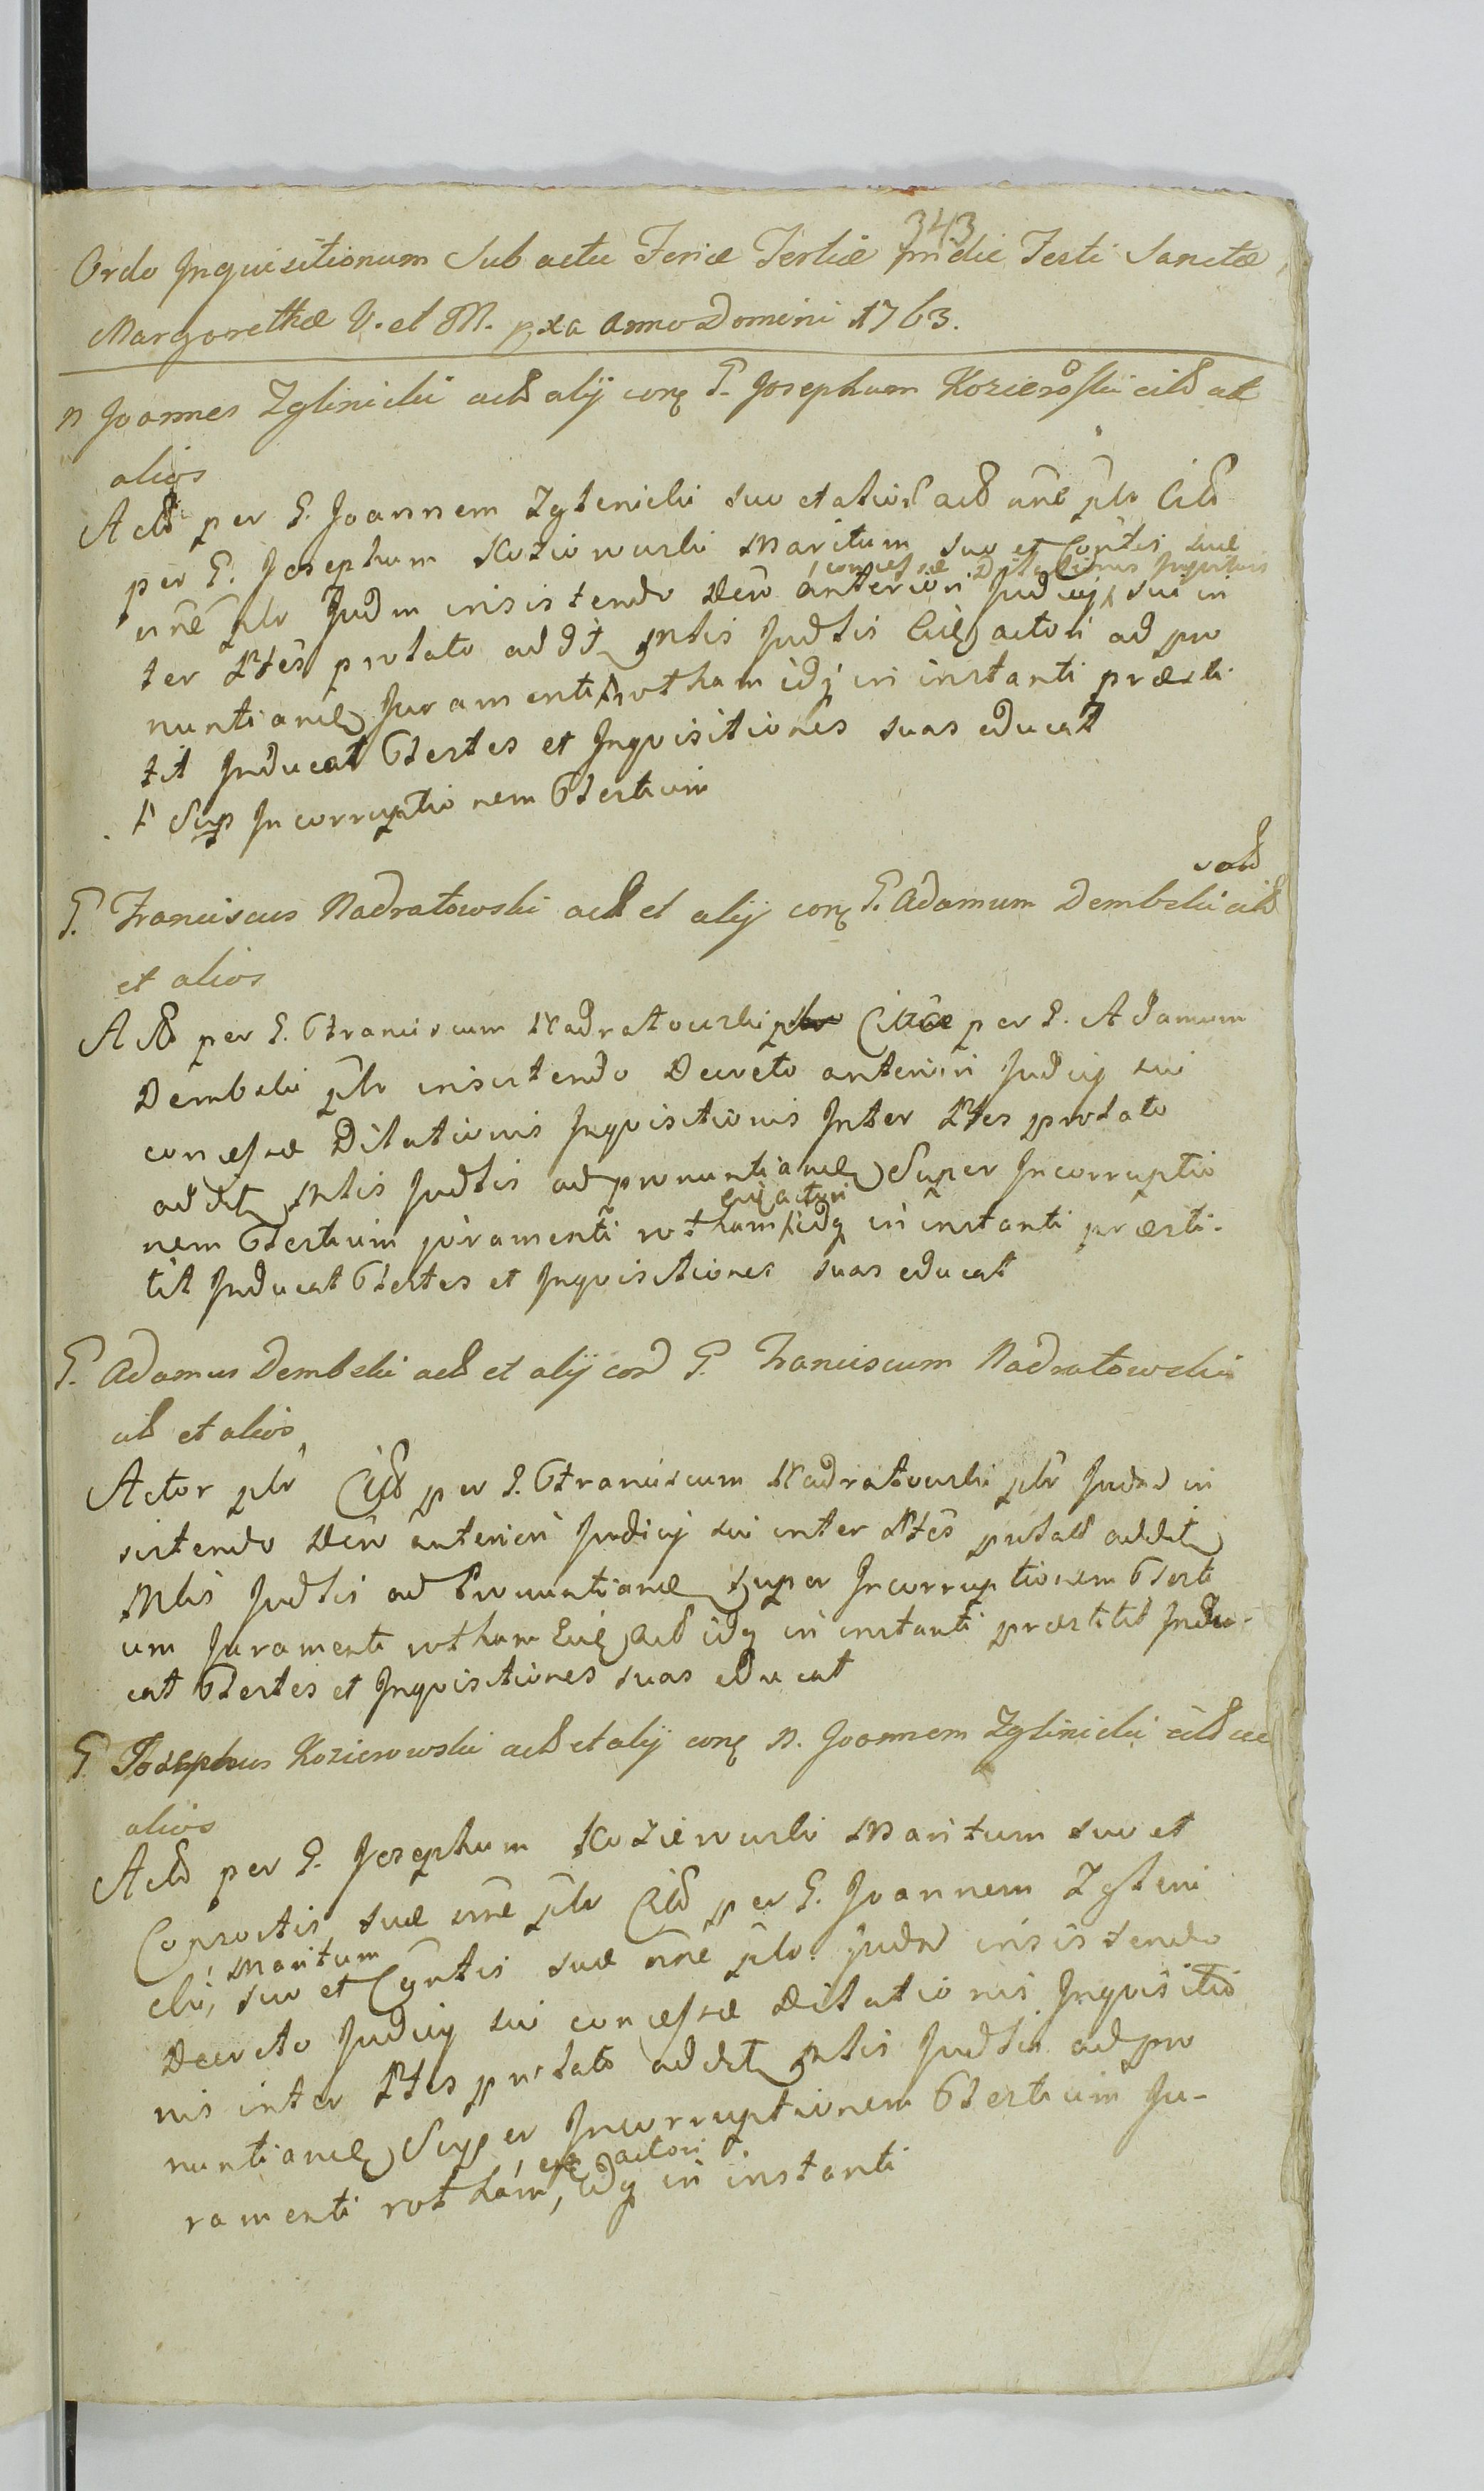 343
Ordo Inquisitionum Sub actu Feriæ Tertiæ pridie Festi Sanctæ
Margarethæ V. et M. pxa Anno Domini 1763.
n Joannes Zglinicki actr alij conq G. Josephum Kozierowski citt et
alios
Actr per G. Joannem Zglenicki suo et alior actr nñe plr Citt
per G. Josephum Koziorowski Maritum suo et Contis suæ
concessæ Dilationis Inquitnis
nñe plr Judm insistendo Decro anteriori Judicij sui in
ter Ptes prolato addt Mtis Judtis Eiq actori ad pro
nuntiand Juramenti rotham idq in instanti præsti
tit Inducat Testes et Inquisitiones suas educat
Sup Incorruptionem Testium
G. Franciscus Nadratowski actr et alij conq G. Adamum Dembski citt
et alios
Actr per G. Franciscum Nadratowski per G. Adamum
Dembski plr insistendo Decreto anteriori Judicij sui
concessæ Dilationis Inquisitionis Inter Ptes prolato
addt Mtis Judtis ad pronuntiand Super Incorruptio
eiq actori
nem Testium juramenti rotham idq in instanti præsti-
tit Inducat Testes et Inquisitiones suas educat
G. Adamus Dembski actr et alij con G. Franciscum Nadratowski
citt et alios
Actor plr Citt per G. Franciscum Nadratowski plr Judm in
sistendo Decro anteriori Judicij sui inter Ptes prolato addt
Mtis Judtis ad Pronuntiand super Incorruptionem Testi
um Juramenti rotham Eiq Act idq in instanti præstitit Indu-
cat Testes et Inquisitiones suas educat
G Josephus Kozierowski actr et alij conq n. Joannem Zglinicki citt et
alios
Actr per G. Josephum Kozierowski Maritum suo et
Consortis suæ nñe plr Citt per G. Joannem Zgleni
Maritum
cki, suo et Contis suæ nñe plr Judm insistendo
Decreto Judicij sui concessæ Dilationis Inquisitio
nis inter Ptes prolato addt Mtis Judtis ad pro
nuntiand Super Incorruptionem Testium Ju-
eiq actori
ramenti rotham, idq in instanti